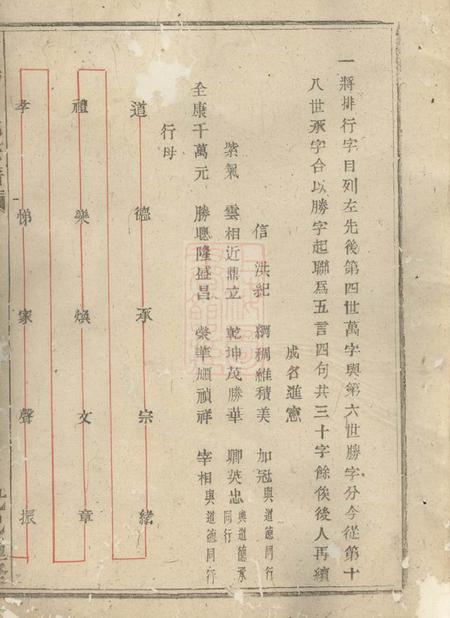 一將排行字目列左先後第四世萬字與第六世勝字分今從第十
八世承字合以勝字起聯爲五言四句共三十字餘俟後人再續
成名進憲
信 洪紀 綱稠維積美 加冠與道德同行
紫氣 雲相近鼎立 乾坤茂勝華 卿英忠與道德承同行
全康千萬元 勝聰隆盛昌 榮華顯禎祥 宰相與道德同行
行母
道德承宗緒
禮樂煥文章
孝悌家聲振